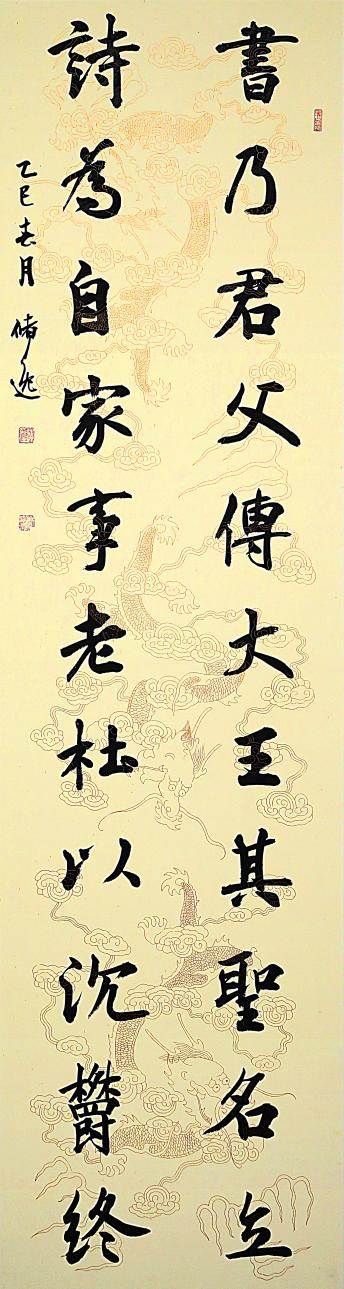 書乃君父傳大王其聖名立
詩為自家事老杜以沉鬱終
乙巳春月